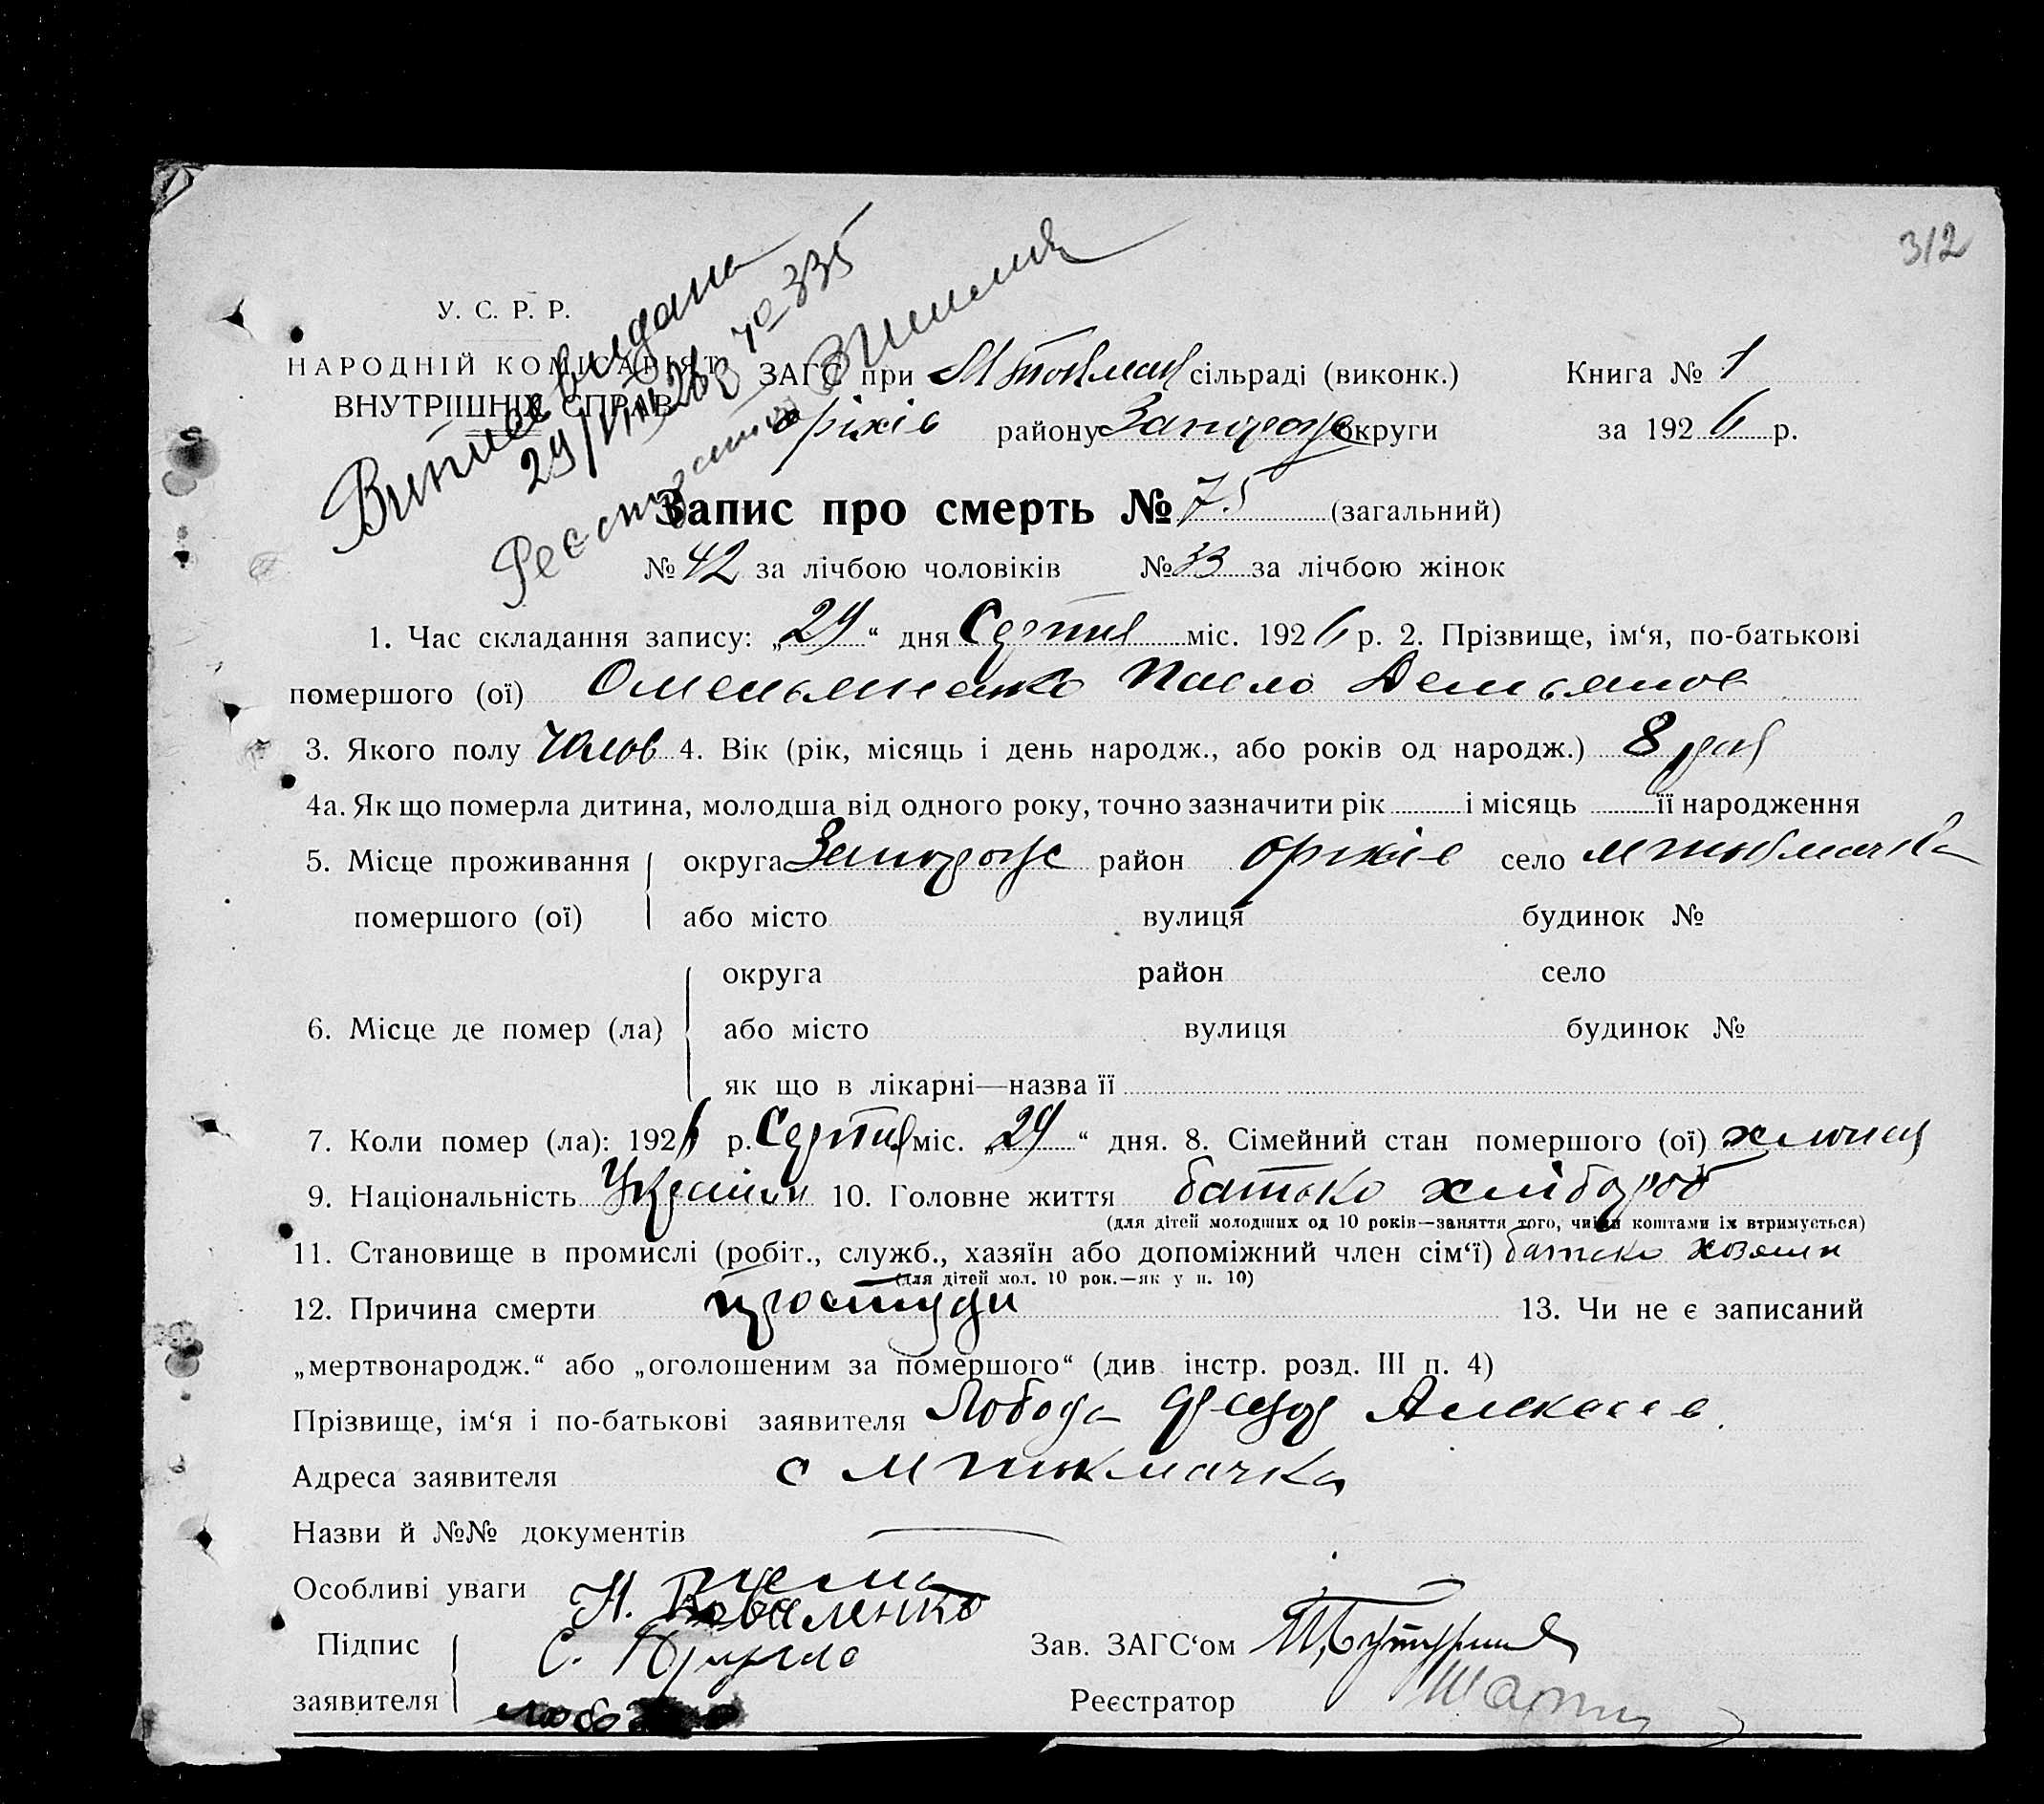 312
У. С. Р. Р.
НАРОДНІЙ КОМІСАРІЯТ
ВНУТРІШНІХ СПРАВ
Випись видана
29/VIII 26 335
ЗАГС при М Токмац сільраді (виконк.) Книга № 1
оріхів району Запорож округи за 1926 р.
Запис про смерть № 75 (загальний)
№ 42 за лічбою чоловіків № 33 за лічбою жінок
1. Час складання запису: „29“ дня Серпня міс. 1926 р. 2. Прізвище, ім‘я, по-батькові
помершого (ої) Омельяненко Павло Демьянов
3. Якого полу Чолов 4. Вік (рік, місяць і день народж., або років од народж.) 8
4а. Як що померла дитина, молодша від одного року, точно зазначити рік і місяць її народження
5. Місце проживання округа Запорож район оріхів село М токмачка
помершого (ої) або місто вулиця будинок №
округа район село
6. Місце де помер (ла) або місто вулиця будинок №
як що в лікарні—назва її
7. Коли помер (ла): 1926 р. Серпня міс. „29“ дня. 8. Сімейний стан помершого (ої) хлопец
9. Національність Україн 10. Головне життя батько хлібороб
(для дітей молодших од 10 років—заняття того, чиїми коштами їх втримується)
11. Становище в промислі (робіт., служб., хазяїн або допоміжний член сім‘ї) батько хозяин
(для дітей мол. 10 рок.—як у п. 10)
12. Причина смерти простуди 13. Чи не є записаний
„мертвонародж.“ або „оголошеним за помершого“ (див. інстр. розд. III п. 4)
Прізвище, ім‘я і по-батькові заявителя Лобода Федор Алексеев.
Адреса заявителя с М токмачка
Назви й №№ документів
Особливі уваги нема
Н. Коваленко
Підпис С. Зав. ЗАГС‘ом
заявителя Реєстратор